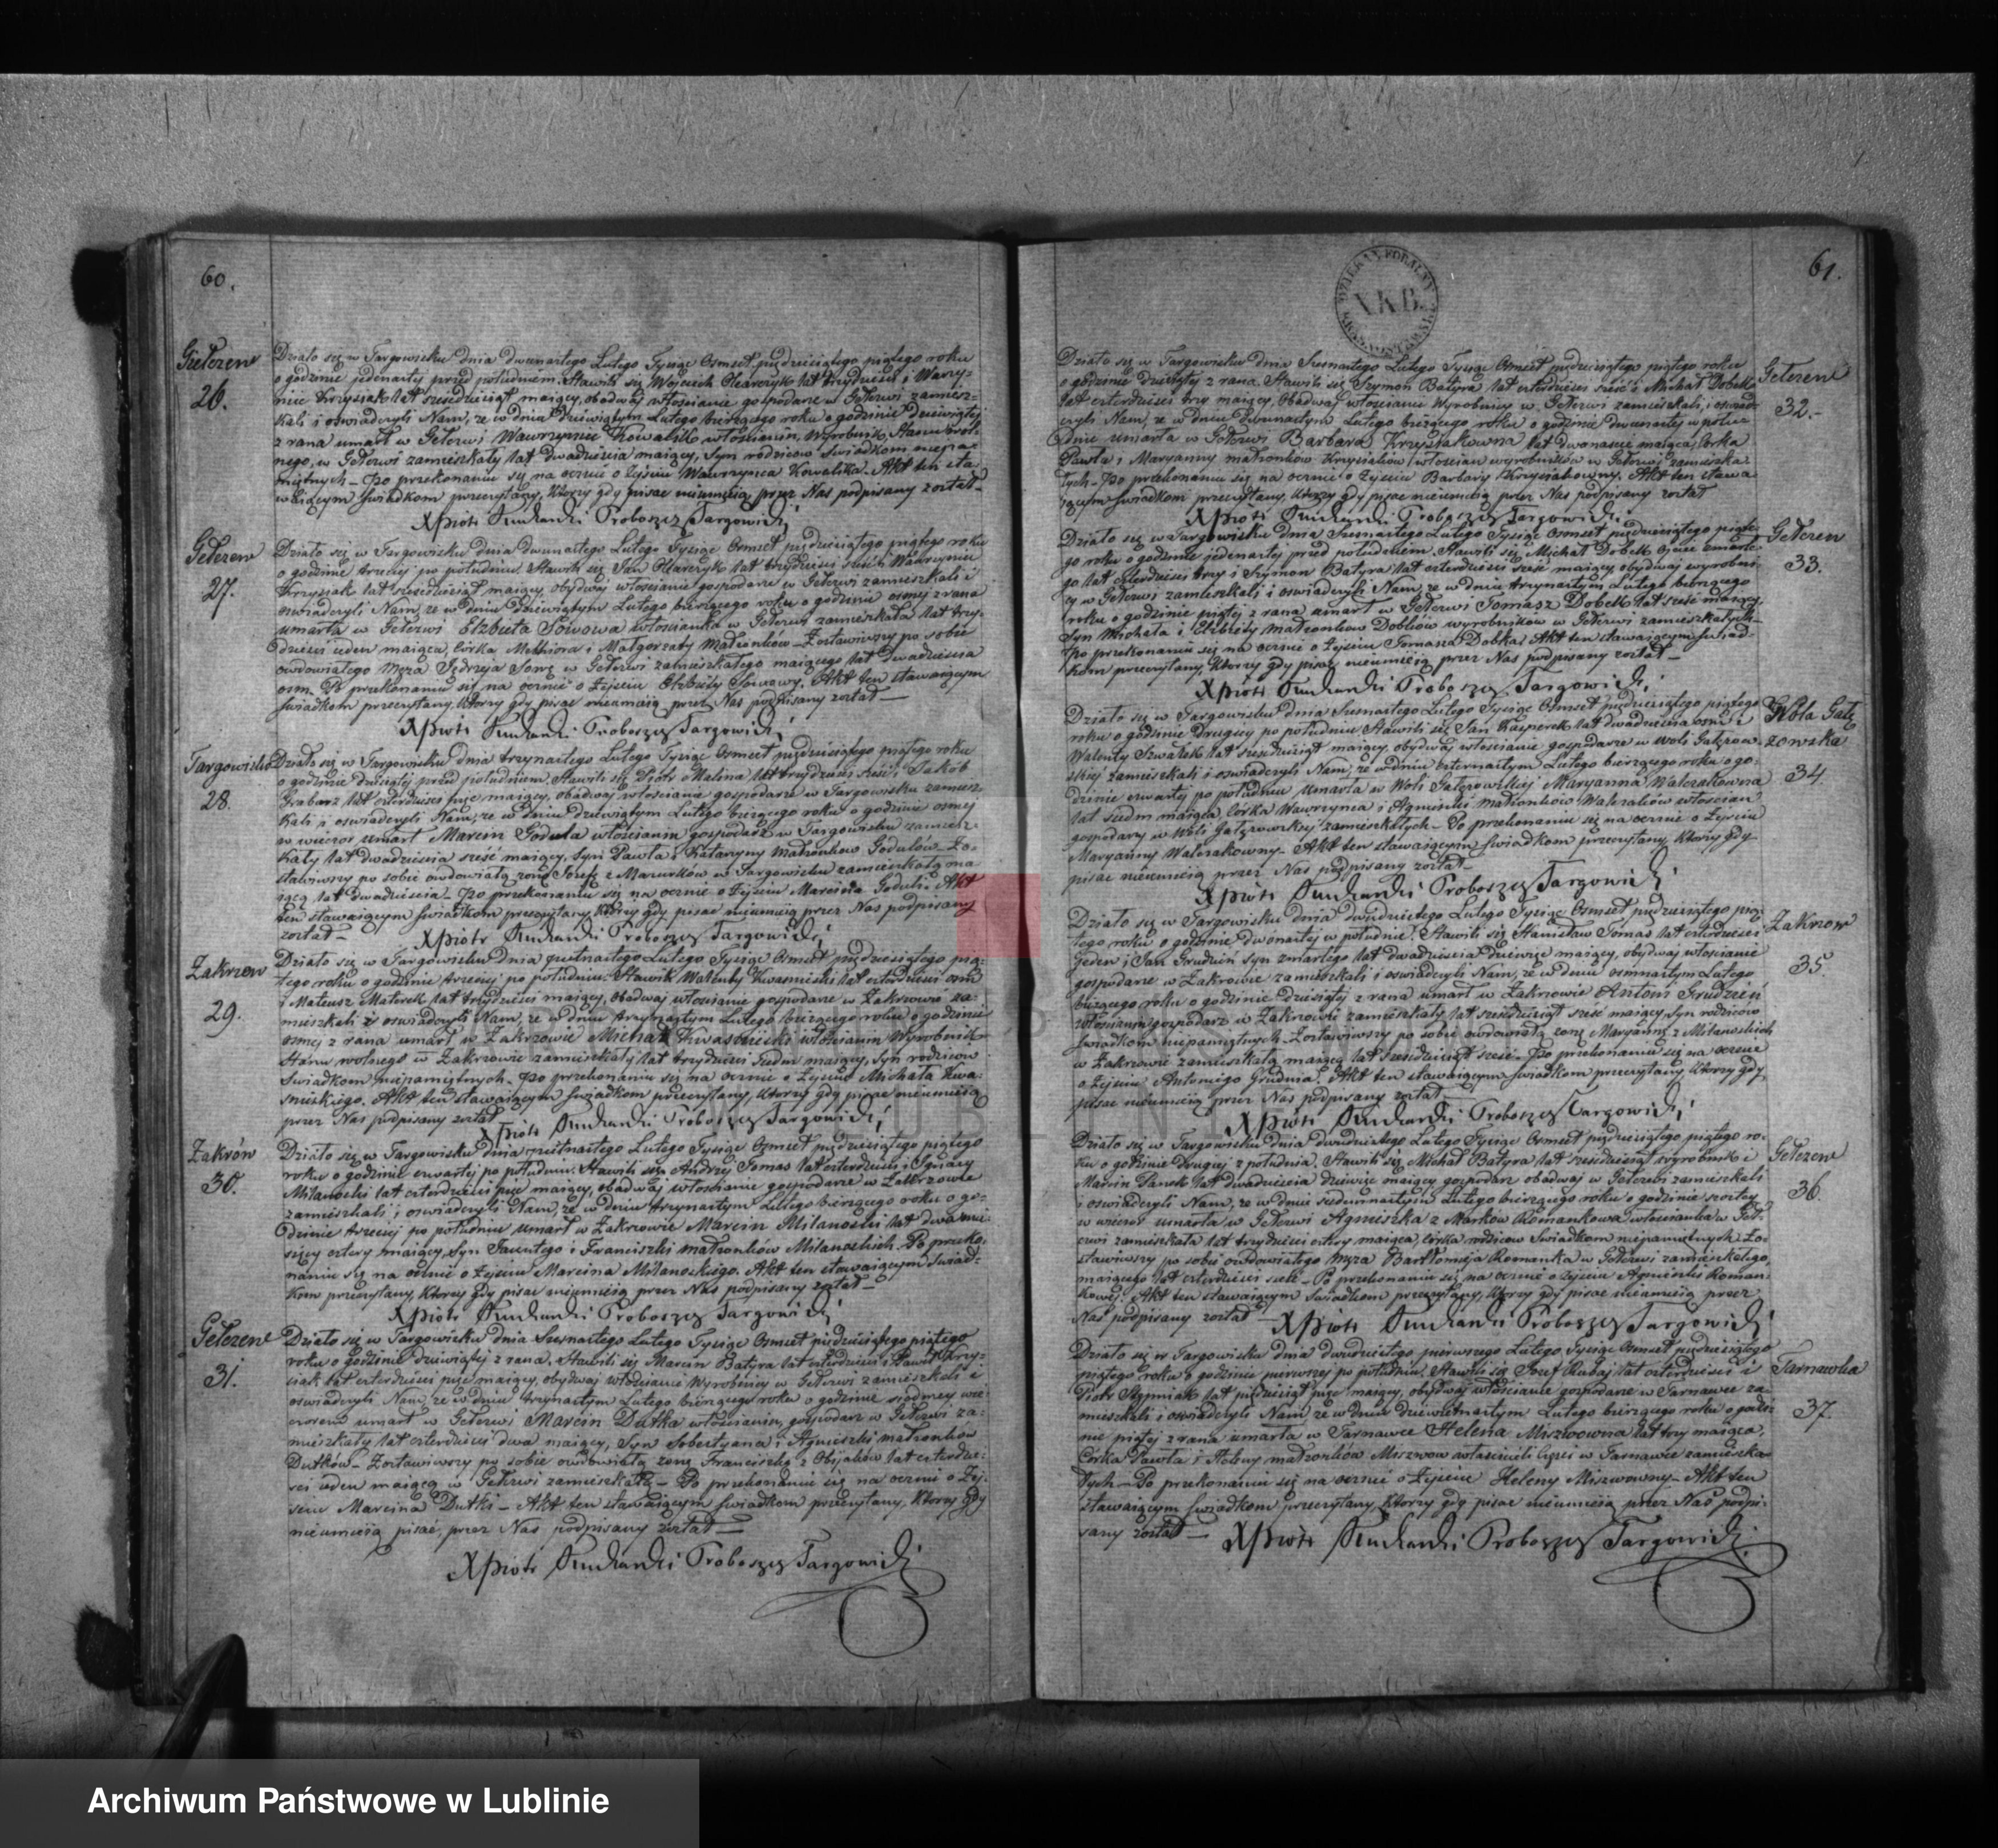 60.
Giełczew
26.
Działo się w Targowisku dnia dwunastego Lutego Tysiąc Osmset pięćdziesiątego piątego roku
o godzinie jedenastej przed południem. Stawili się Wojciech Olearczyk lat trzydzieści i Wawrzy-
niec Krzysiak lat sześćdziesiąt maiący, obadwaj włościanie gospodarze w Gełczwi zamiesz-
kali i oświadczyli Nam, że w dniu dziewiątym Lutego bieżącego roku o godzinie dziewiątej
z rana umarł w Gełczwi Wawrzyniec Kowalik włościanin, wyrobnik, stanu wol-
nego, w Gełczwi zamieszkały lat dwadzieścia maiący, Syn rodziców Świadkom niepa-
miętnych – Po przekonaniu się na ocznie o Zejściu Wawrzyńca Kowalika. Akt ten sta-
waiącym świadkom przeczytany, Którzy gdy pisać nieumieią przez Nas podpisany został
X Piotr Proboszcz Targowicki
Gełczew
27.
Działo się w Targowisku dnia dwunastego Lutego Tysiąc Osmset pięćdziesiątego piątego roku
o godzinie trzeciej po południu. Stawili się Jan Olearczyk lat trzydzieści sześć i Wawrzyniec
Krzysiak lat sześćdziesiąt maiący, obydwaj włościanie gospodarze w Gełczwi zamieszkali i
oświadczyli Nam, że w dniu dziewiątym Lutego bieżącego roku o godzinie osmej z rana
umarła w Gełczwi Elzbieta Sowowa włościanka w Gełczwi zamieszkała lat trzy-
dzieści ieden maiąca, Córka Melhiora i Małgorzaty Małżonków – Zostawiwszy po sobie
owdowiałego Męża Jędrzeja Sowę w Gełczwi zamieszkałego maiącego lat dwadzieścia
osm. Po przekonaniu się na ocznie o Zejściu Elzbiety Sowowy. Akt ten stawaiącym
świadkom przeczytany, Którzy gdy pisać nieumieią przez Nas podpisany został —
X Piotr Proboszcz Targowicki
Targowisko
28.
Działo się w Targowisku dnia trzynastego Lutego Tysiąc Osmset pięćdziesiątego piątego roku
o godzinie dziesiątej przed południem. Stawili się Piotr Malina lat trzydzieści sześć i Jakób
Grabarz lat czterdzieści pięć maiący, obadwaj włościanie gospodarze w Targowisku zamiesz-
kali i oświadczyli Nam, że w dniu dziewiątym Lutego bieżącego roku o godzinie osmej
w wieczor umarł Marcin Godula włościanin gospodarz w Targowisku zamiesz-
kały lat dwadzieścia sześć maiący, Syn Pawła i Katarzyny Małżonków Godulów – Zo-
stawiwszy po sobie owdowiałą żonę Józefę z Mazurków w Targowisku zamieszkałą ma-
iącą lat dwadzieścia – Po przekonaniu się na ocznie o Zejściu Marcina Goduli. Akt
ten stawaiącym świadkom przeczytany, Którzy gdy pisać nieumieią przez Nas podpisany
został —
X Piotr Proboszcz Targowicki
Zakrzew
29.
Działo się w Targowisku dnia piętnastego Lutego Tysiąc Osmset pięćdziesiątego pią-
tego roku o godzinie trzeciej po południu. Stawili Walenty Kwasniecki lat czterdzieści osm
i Mateusz Materek lat trzydzieści maiący, Obadwaj włościanie gospodarze w Zakrzowie za-
mieszkali i oświadczyli Nam, że w dniu trzynastym Lutego bieżącego roku o godzinie
osmej z rana umarł w Zakrzowie Michał Kwasniecki włościanin Wyrobnik
stanu wolnego w Zakrzowie zamieszkały lat trzydzieści siedm maiący, Syn rodziców
Świadkom niepamiętnych. Po przekonaniu się na ocznie o Zejściu Michała Kwa-
snieckiego. Akt ten stawaiącym świadkom przeczytany, Którzy gdy pisać nieumieią
przez Nas podpisany został
X Piotr Proboszcz Targowicki
Zakrów
30.
Działo się w Targowisku dnia piętnastego Lutego Tysiąc Osmset pięćdziesiątego piątego
roku o godzinie czwartej po południu. Stawili się Andrzej Tomas lat czterdzieści i Ignacy
Milanoski lat czterdzieści pięć maiący, obadwaj włościanie gospodarze w Zakrzowie
zamieszkali i oświadczyli Nam, że w dniu trzynastym Lutego bieżącego roku o go-
dzinie trzeciej po południu umarł w Zakrzowie Marcin Milanoski lat dwa mie-
sięcy cztery maiący, Syn Jacentego i Franciszki małżonków Milanoskich. Po przeko-
naniu się na ocznie o Zejściu Marcina Milanoskiego. Akt ten stawaiącym świad-
kom przeczytany, Którzy gdy pisać nieumieią przez Nas podpisany został —
X Piotr Proboszcz Targowicki
Gełczew
31.
Działo się w Targowisku dnia Szesnastego Lutego Tysiąc Osmset pięćdziesiątego piątego
roku o godzinie dziewiątej z rana, Stawili się Marcin Batyra lat czterdzieści i Paweł Krzy-
siak lat czterdzieści pięć maiący, obydwaj włościanie Wyrobnicy w Gełczwi zamieszkali i
oświadczyli Nam, że w dniu trzynastym Lutego bieżącego roku o godzinie siodmej wie-
czorem umarł w Gełczwi Marcin Dutka włościanin, gospodarz w Gełczwi za-
mieszkały lat czterdzieści dwa maiący, Syn Sobestyana i Agnieszki małżonków
Dutków – Zostawiwszy po sobie owdowiałą żonę Franciszkę z Obijaków lat czterdzie-
ści ieden maiącą w Gełczwi zamieszkałą – Po przekonaniu się na ocznie o Zej-
ściu Marcina Dutki – Akt ten stawaiącym świadkom przeczytany, Którzy gdy
nieumieią pisać, przez Nas podpisany został —
X Piotr Proboszcz Targowicki
61.
DZIEKAN FORALNY
KRASNOSTAWSKI
Gełczew
32.
Działo się w Targowisku dnia Szesnastego Lutego Tysiąc Osmset pięćdziesiątego piątego roku
o godzinie dziesiątej z rana. Stawili się Szymon Batyra lat czterdzieści sześć i Michał Dobek
lat czterdzieści trzy maiący, Obadwaj włościanie Wyrobnicy w Gełczwi zamieszkali, i oświad-
czyli Nam, że w dniu dwunastym Lutego bieżącego roku o godzinie dwunastej w połu-
dnie umarła w Gełczwi Barbara Krzysiakowna lat dwanaście maiąca, Córka
Pawła i Maryanny małżonków Krzysiaków włościan wyrobników w Gełczwi zamieszka-
łych – Po przekonaniu się na ocznie o Zejściu Barbary Krzysiakowny. Akt ten stawa-
iącym świadkom przeczytany, Którzy gdy pisać nieumieią przez Nas podpisany został
X Piotr Proboszcz Targowicki
Gełczew
33.
Działo się w Targowisku dnia Szesnastego Lutego Tysiąc Osmset pięćdziesiątego piąte-
go roku o godzinie jedenastej przed południem. Stawili się Michał Dobek Ojciec zmarłe-
go lat czterdzieści trzy i Szymon Batyra lat czterdzieści sześć maiący obydwaj wyrobni-
cy w Gełczwi zamieszkali i oświadczyli Nam, że w dniu trzynastym Lutego bieżącego
roku o godzinie piątej z rana umarł w Gełczwi Tomasz Dobek lat sześć maiący,
Syn Michała i Elzbiety małżonków Dobków wyrobników w Gełczwi zamieszkałych –
Po przekonaniu się na ocznie o Zejściu Tomasza Dobka. Akt ten stawaiącym świad-
kom przeczytany, Którzy gdy pisać nieumieią przez Nas podpisany został —
X Piotr Proboszcz Targowicki
Wola Gałę
zowska
34
Działo się w Targowisku dnia Szesnastego Lutego Tysiąc Osmset pięćdziesiątego piątego
roku o godzinie drugiej po południu Stawili się Jan Kasperek lat dwadzieścia osm i
Walenty Szwałek lat sześćdziesiąt maiący, obydwaj włościanie gospodarze w Woli Gałęzow-
skiej zamieszkali i oświadczyli Nam, że w dniu czternastym Lutego bieżącego roku o go-
dzinie czwartej po południu umarła w Woli Gałęzowskiej Maryanna Walczakowna
lat siedm maiąca, Córka Wawrzyńca i Agnieszki małżonków Walczaków włościan
gospodarzy w Woli Gałęzowskiej zamieszkałych – Po przekonaniu się na ocznie o Zejściu
Maryanny Walczakowny – Akt ten stawaiącym świadkom przeczytany, Którzy gdy
pisać nieumieią przez Nas podpisany został —
X Piotr Proboszcz Targowicki
Zakrzow
35.
Działo się w Targowisku dnia dwudziestego Lutego Tysiąc Osmset pięćdziesiątego pią-
tego roku o godzinie dwonastej w południe. Stawili się Stanisław Tomas lat czterdzieści
jeden i Jan Grudzień Syn zmarłego lat dwadzieścia dziewięć maiący, obydwaj włościanie
gospodarze w Zakrowie zamieszkali i oświadczyli Nam, że w dniu osmnastym Lutego
bieżącego roku o godzinie dziesiątej z rana umarł w Zakrzowie Antoni Grudzień
włościanin gospodarz w Zakrzowie zamieszkały lat sześćdziesiąt sześć maiący, Syn rodziców
świadkom niepamiętnych. Zostawiwszy po sobie owdowiałą żonę Maryannę z Milanoskich
w Zakrzowie zamieszkałą maiącą lat sześćdziesiąt sześć – Po przekonaniu się na ocznie
o Zejściu Antoniego Grudnia. Akt ten stawaiącym świadkom przeczytany, Którzy gdy
pisać nieumieią przez Nas podpisany został —
X Piotr Proboszcz Targowicki
Gełczew
36.
Działo się w Targowisku dnia dwudziestego Lutego Tysiąc Osmset pięćdziesiątego piątego ro-
ku o godzinie Drugiej z południa. Stawili się Michał Batyra lat sześćdziesiąt wyrobnik i
Marcin Panek lat dwadzieścia dziewięć maiący gospodarz obadwaj w Gełczwi zamieszkali
i oświadczyli Nam, że w dniu siedmnastym Lutego bieżącego roku o godzinie szostej
w wieczor umarła w Gełczwi Agnieszka z Marków Romankowa włościanka w Geł-
czwi zamieszkała lat trzydzieści cztery maiąca, Córka rodziców Świadkom niepamiętnych. Zo-
stawiwszy po sobie owdowiałego Męża Bartłomieja Romanka w Gełczwi zamieszkałego,
maiącego lat czterdzieści sześć – Po przekonaniu się na ocznie o Zejściu Agnieszki Roman-
kowej. Akt ten stawaiącym świadkom przeczytany, Którzy gdy pisać nieumieią przez
Nas podpisany został —
X Piotr Proboszcz Targowicki
Tarnawka
37.
Działo się w Targowisku dnia dwudziestego pierwszego Lutego Tysiąc Osmset pięćdziesiątego
piątego roku o godzinie pierwszej po południu. Stawili się Józef Kubaj lat czterdzieści i
Piotr Stępniak lat pięćdziesiąt pięć maiący, obydwaj włościanie gospodarze w Tarnawce za-
mieszkali i oświadczyli Nam, że w dniu dziewiętnastym Lutego bieżącego roku o godzi-
nie piątej z rana umarła w Tarnawce Helena Miszwowna lat trzy maiąca,
Córka Pawła i małżonków Miszwow właścicieli części w Tarnawce zamieszka-
łych – Po przekonaniu się na ocznie o Zejściu Heleny Miszwowny – Akt ten
stawaiącym świadkom przeczytany, Którzy gdy pisać nieumieią przez Nas podpi-
sany został —
X Piotr Proboszcz Targowicki
Archiwum Państwowe w Lublinie